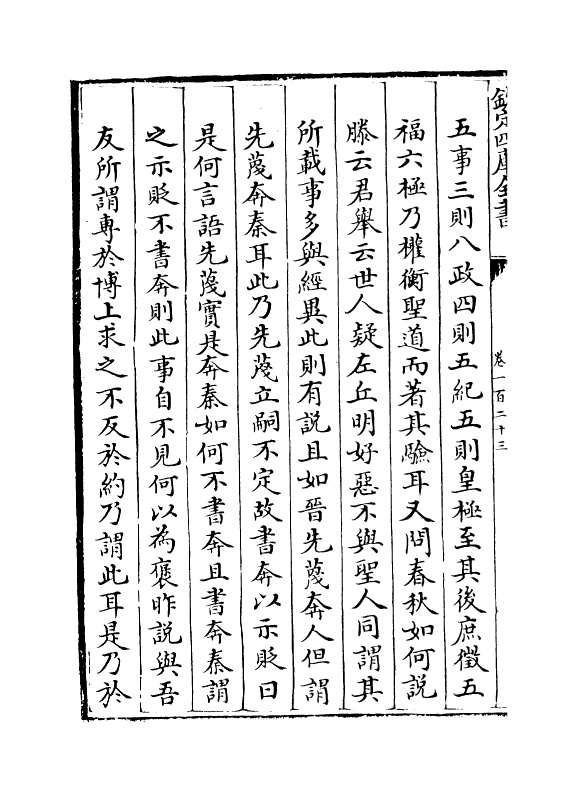 欽定四庫全書
卷一百二十三
五事三則八政四則五紀五則皇極至其後庶徵五
福六極乃權衡聖道而著其驗耳又問春秋如何說
滕云君舉云世人疑左丘明好惡不與聖人同謂其
所載事多與經異此則有説且如晉先蔑奔人但謂
先蔑奔秦耳此乃先蔑立嗣不定故書奔以示貶曰
是何言語先蔑實是奔秦如何不書奔且書奔秦謂
之示貶不書奔則此事自不見何以為褒昨説與吾
友所謂専於博上求之不反於約乃謂此耳是乃於